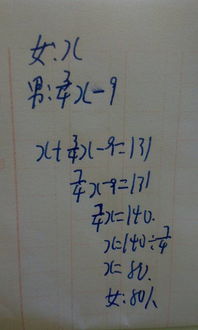 女:x
男:3/4x-9
x+3/4x-9=131
7/4x-9=131
7/4x=140.
x=140÷7/4
x=80.
女:80人